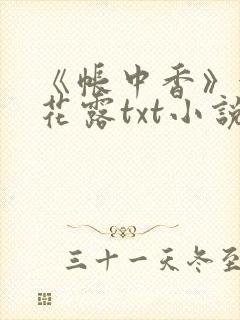 《帐中香》
花露txt小說
三十一天冬至